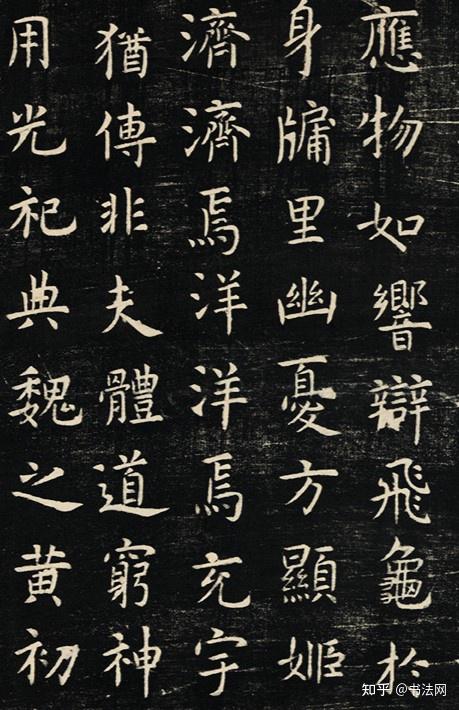 應物如響辯飛龜於
身牖里幽憂方顯姬
濟濟焉洋洋焉充宇
猶傳非夫體道窮神
用光祀典魏之黄初
知乎 @书法网